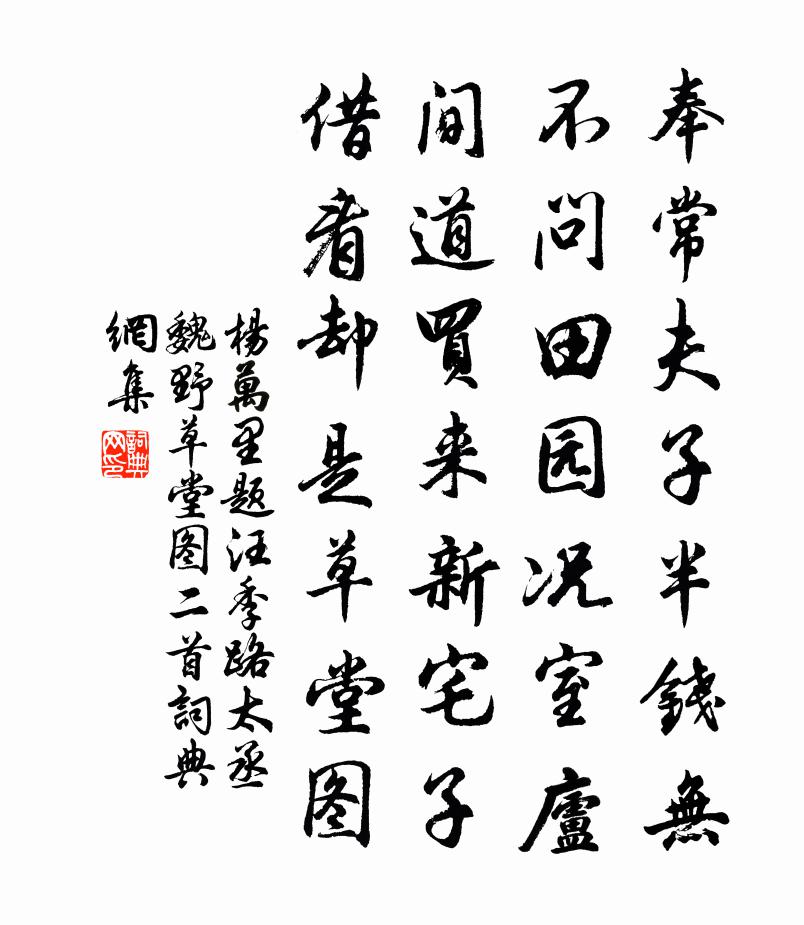 奉常夫子半錢無
不问田园况室廬
间道買来新宅子
借看却是草堂图
楊萬里题汪季路太丞
魏野草堂图二首詞典
網集
詞典网印